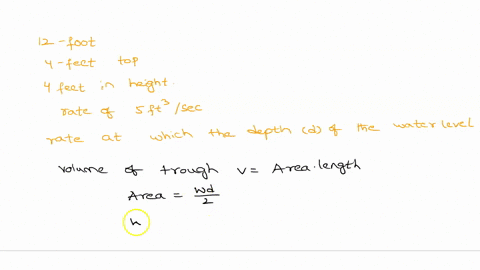 12-foot
4-feet top
4 feet in height.
rate of 5 ft³/sec
rate at which the depth (d) of the water level
volume of trough v = Area.length
Area = wd/2
h